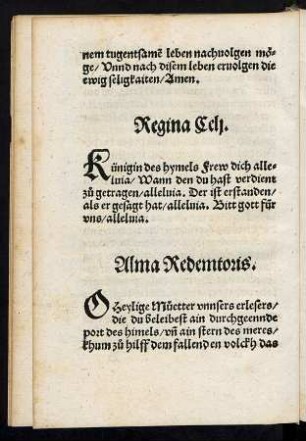 nem tugentsamē leben nachuolgen mö-
ge/ Vnnd nach disem leben eruolgen die
ewig seligkaiten/ Amen.
Regina Celj.
Künigin des hymels Frew dich alle-
luia/ Wann den du hast verdient
zů getragen/ alleluia. Der ist erstanden/
als er gesagt hat/ alleluia. Bitt gott für
vns/ alleluia.
Alma Redemtoris.
O Heylige Můetter vnnsers erlesers/
die du beleibest ain durchgeennde
port des himels/ vñ ain stern des meres/
khum zů hilff dem fallend en volckh das